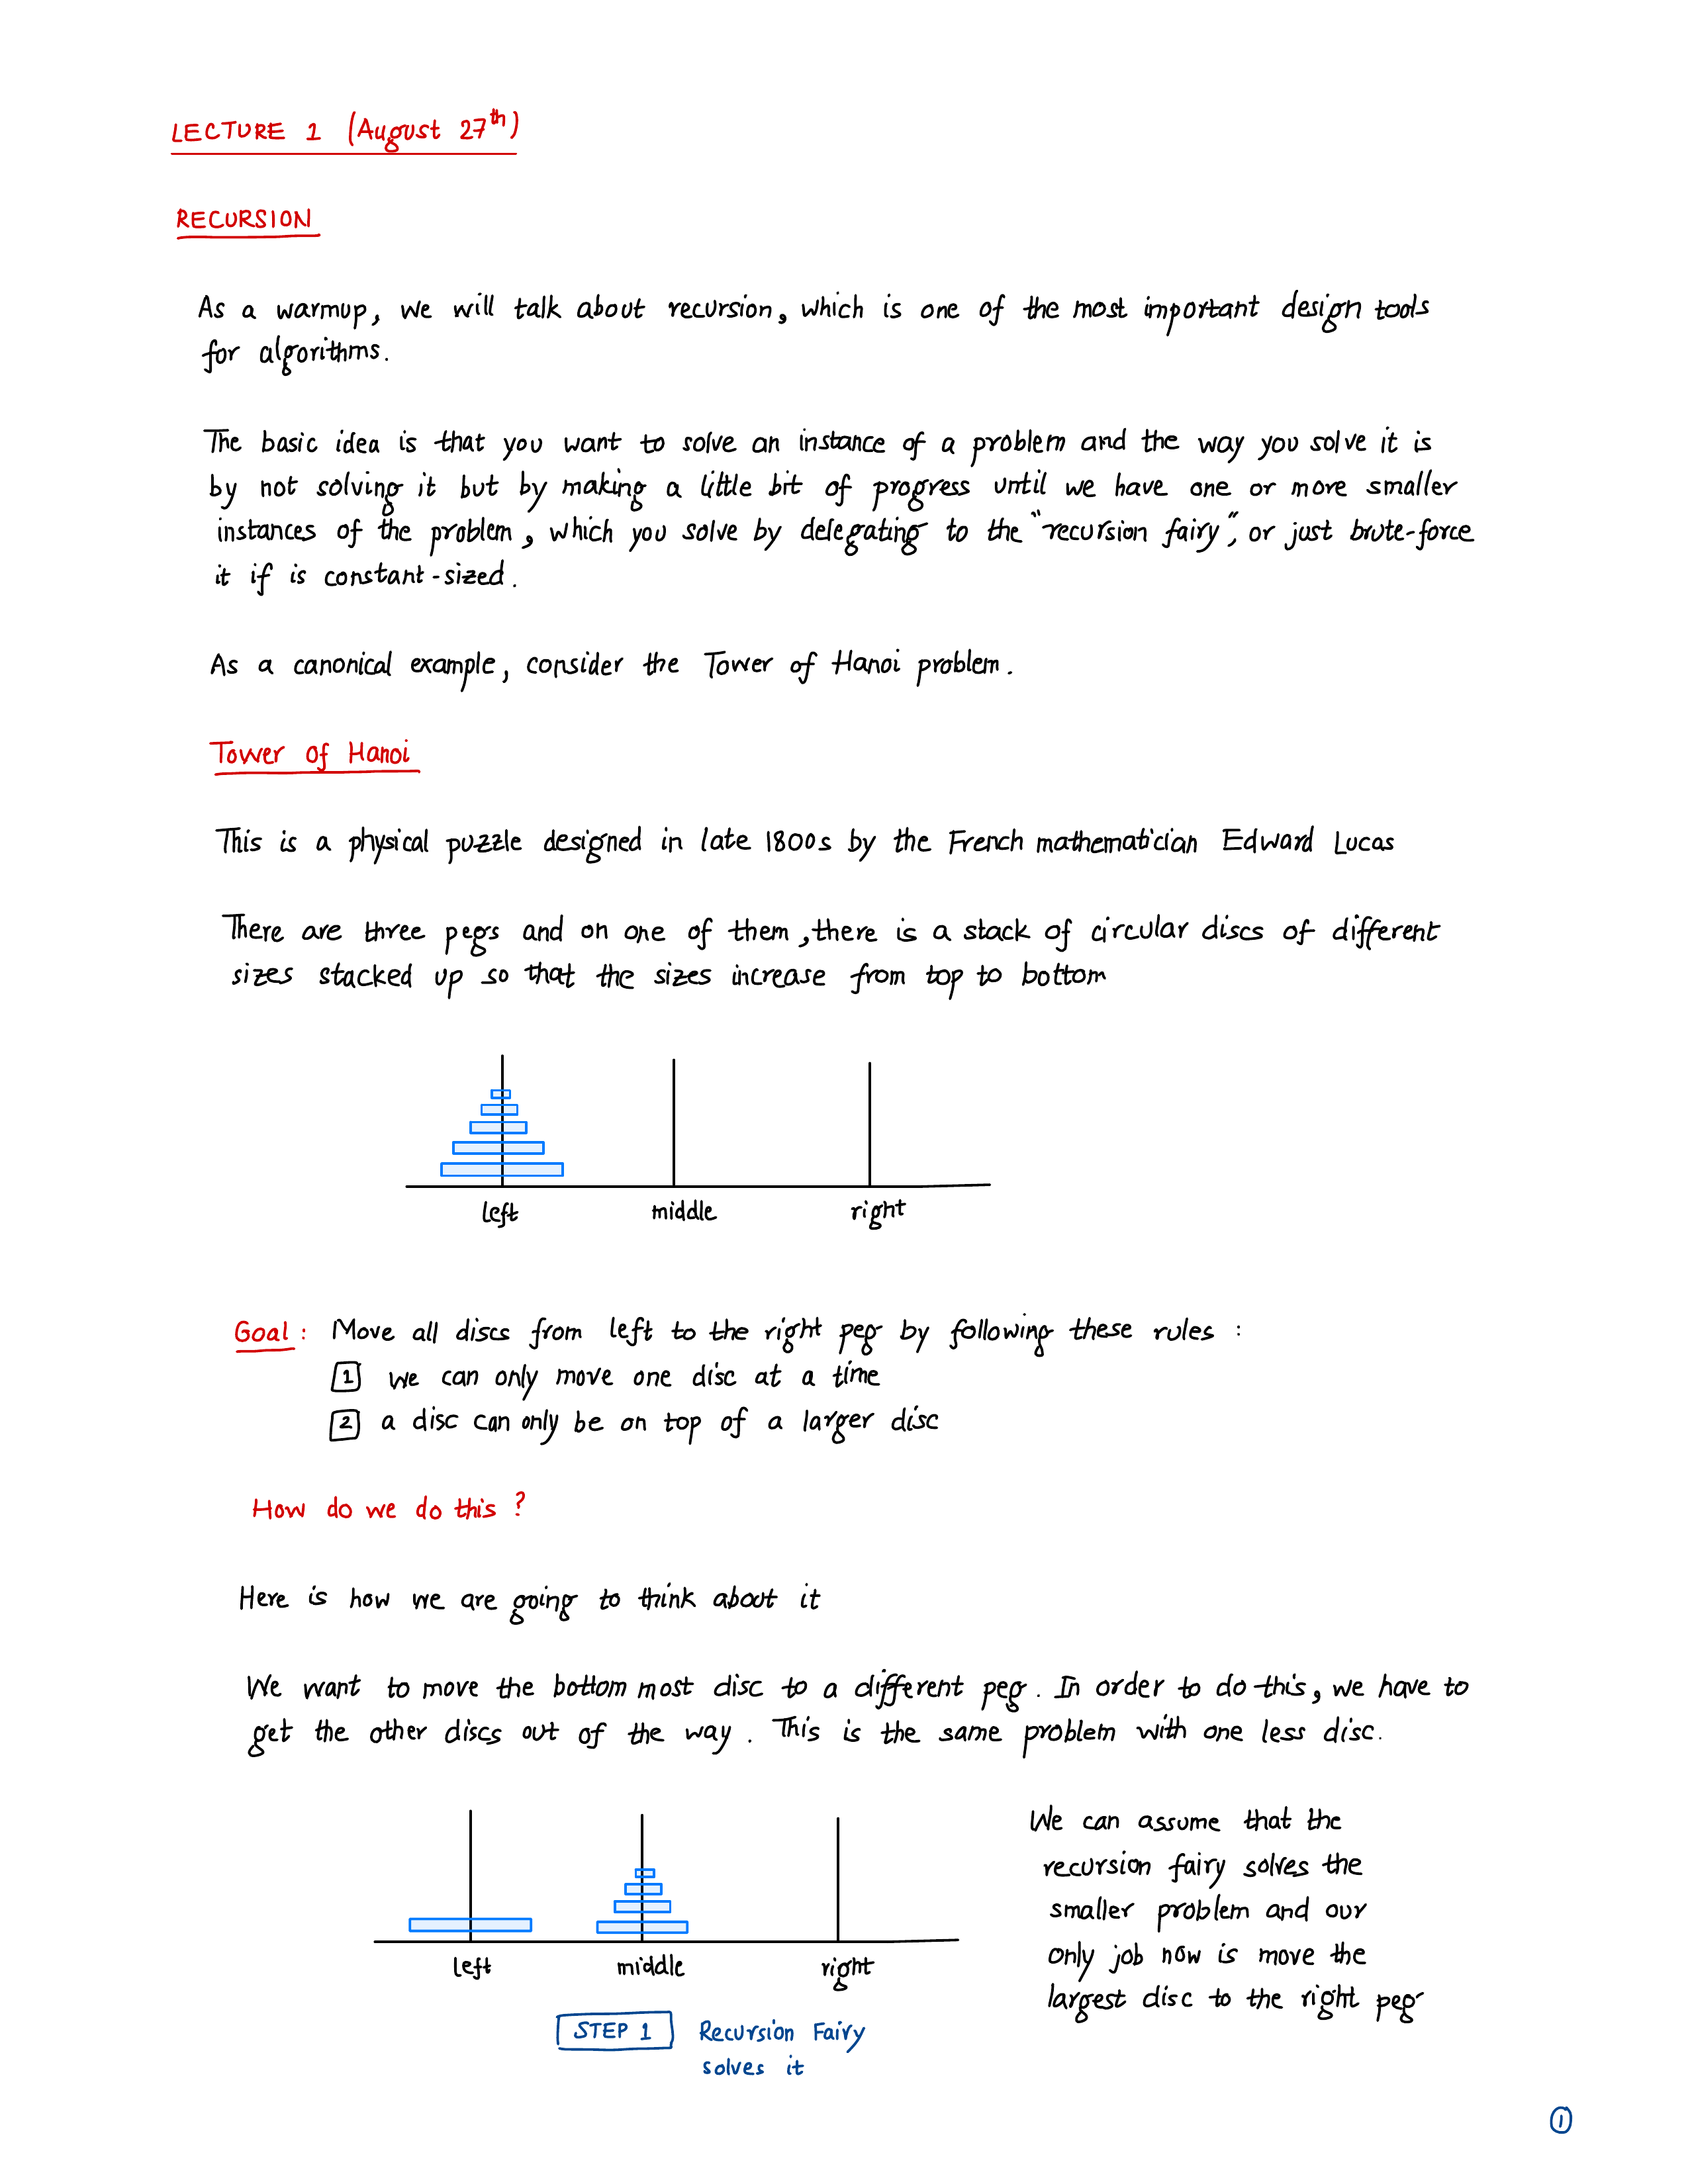 LECTURE 1 (August 27th)
RECURSION
As a warmup, we will talk about recursion, which is one of the most important design tools
for algorithms.
The basic idea is that you want to solve an instance of a problem and the way you solve it is
by not solving it but by making a little bit of progress until we have one or more smaller
instances of the problem, which you solve by delegating to the "recursion fairy", or just brute-force
it if is constant-sized.
As a canonical example, consider the Tower of Hanoi problem.
Tower of Hanoi
This is a physical puzzle designed in late 1800s by the French mathematician Edward Lucas
There are three pegs and on one of them, there is a stack of circular discs of different
sizes stacked up so that the sizes increase from top to bottom
left middle right
Goal : Move all discs from left to the right peg by following these rules :
1 we can only move one disc at a time
2 a disc can only be on top of a larger disc
How do we do this ?
Here is how we are going to think about it
We want to move the bottom most disc to a different peg. In order to do this, we have to
get the other discs out of the way. This is the same problem with one less disc.
We can assume that the
recursion fairy solves the
smaller problem and our
only job now is move the
largest disc to the right peg
left middle right
STEP 1 Recursion Fairy
solves it
1